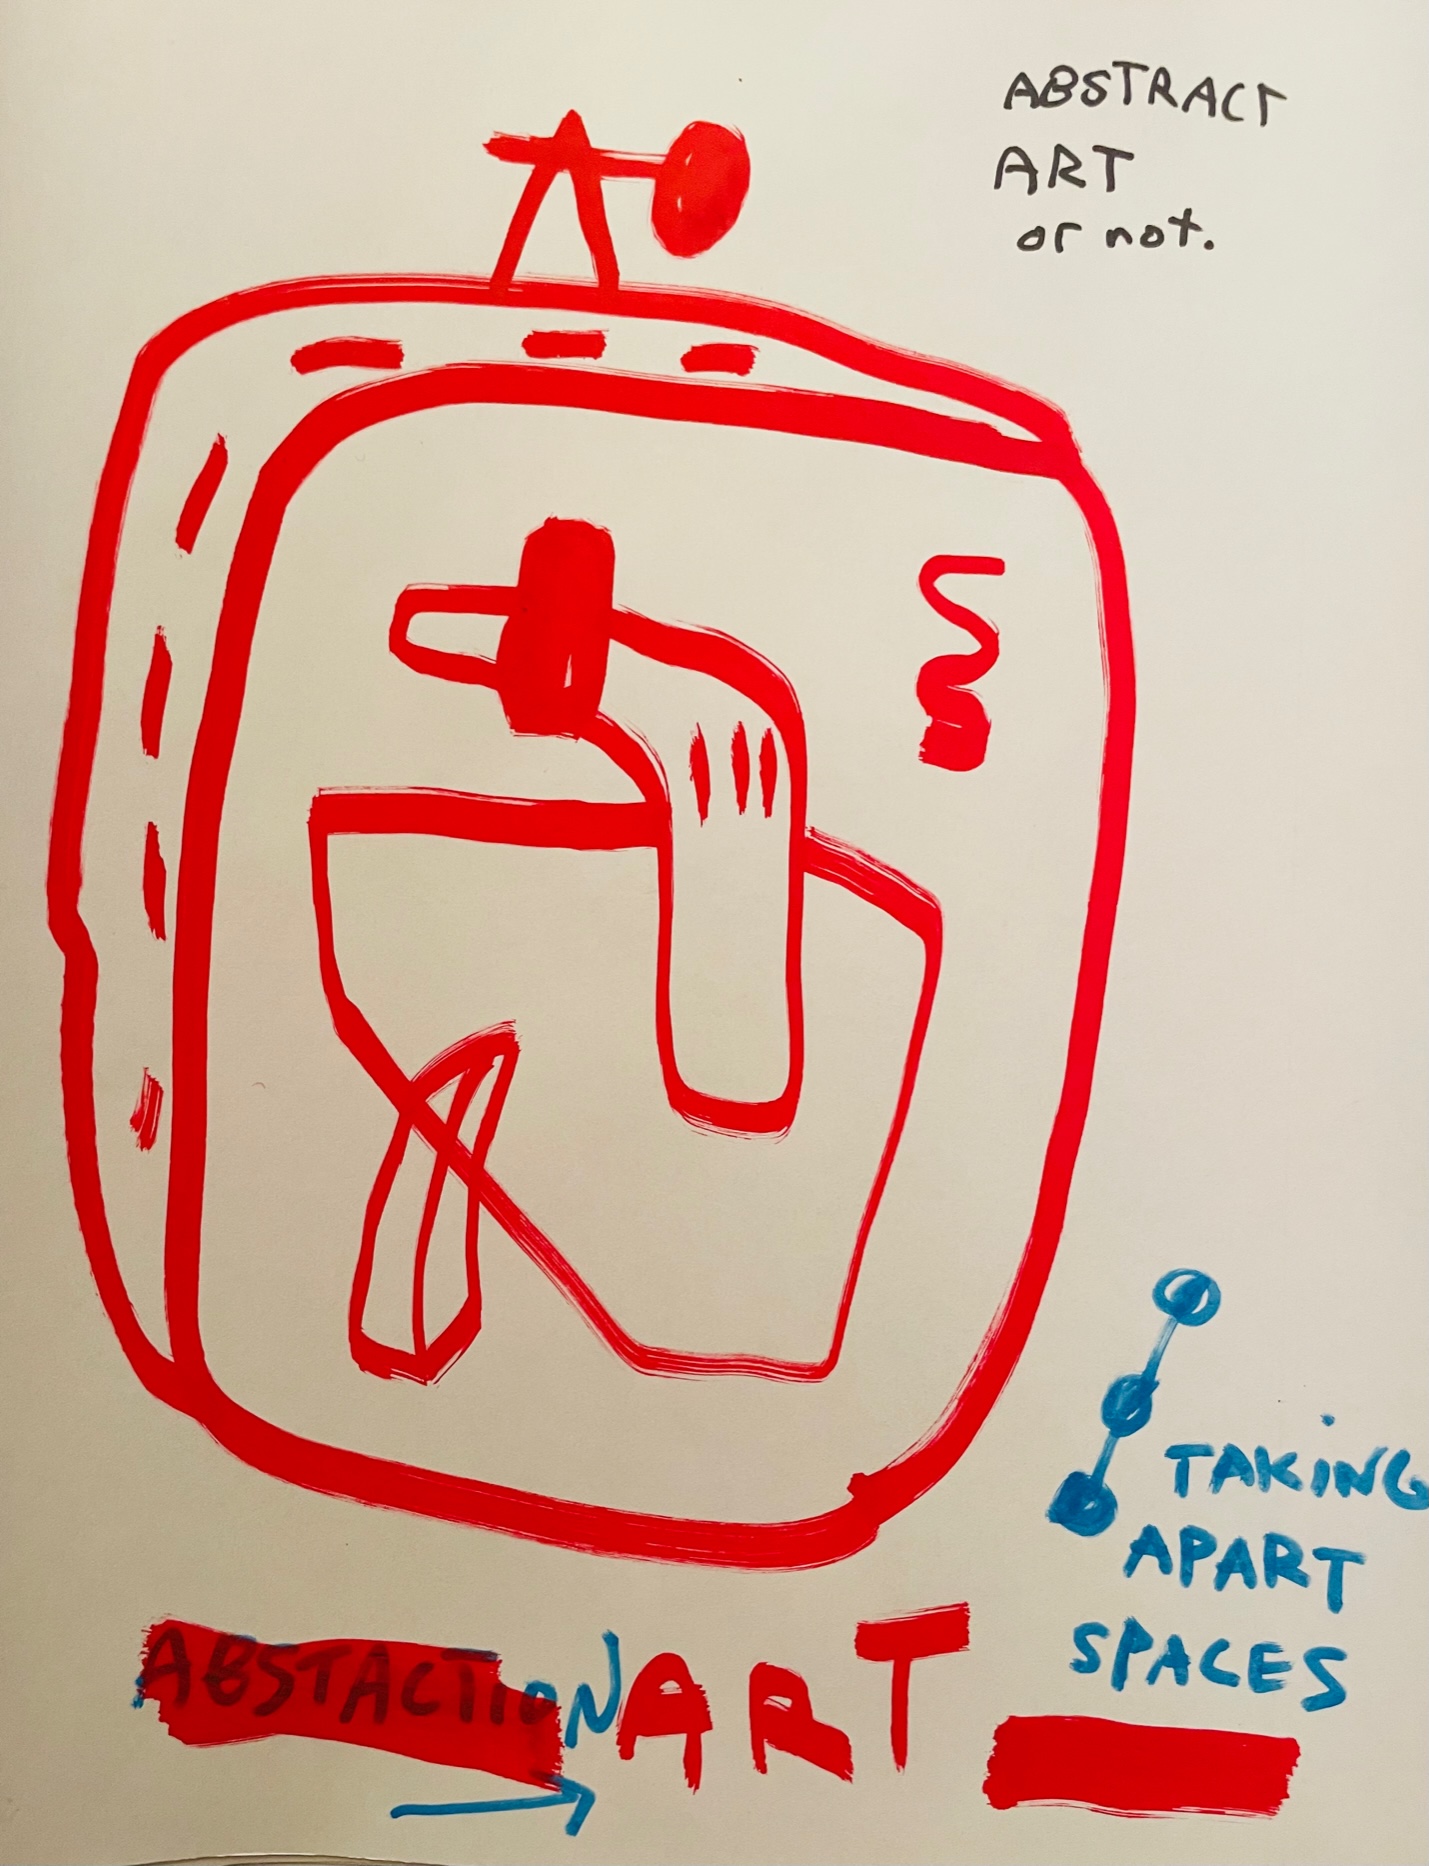 ABSTRACT
ART
or not.
TAKING
APART
SPACES
ABSTACTION ART